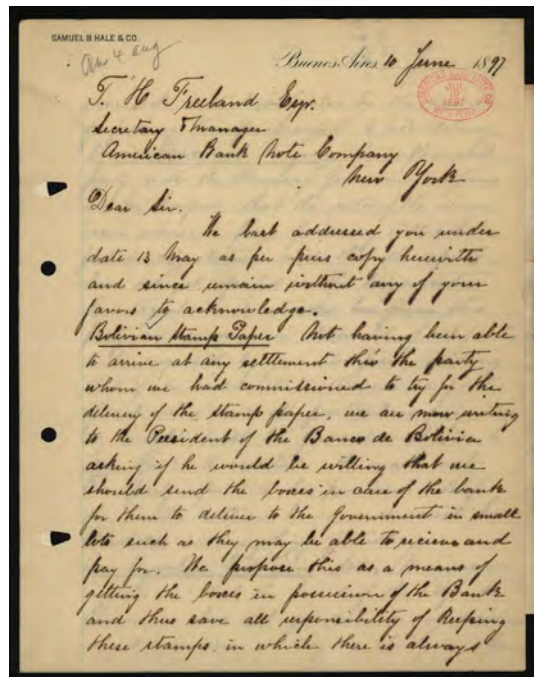 SAMUEL B HALE & CO.
Ans 4 aug
Buenos Aires 10 June 1897
T. H Freeland Esqr.
Secretary & manager
American Bank Note Company
New York
Dear Sir.
We last addressed you under
date 13 May as per press copy herewith
and since remain without any of your
favors to acknowledge.
Bolivian Stamp Paper Not having been able
to arrive at any settlement thro the party
whom we had commissioned to try for the
delivery of the stamp paper, we are now writing
to the President of the Banco de Bolivia
asking if he would be willing that we
should send the boxes in care of the bank
for them to deliver to the Government in small
lots such as they may be able to recieve and
pay for. We propose this as a means of
getting the boxes in possession of the Bank
and thus save all responsibility of keeping
these stamps, in which there is always